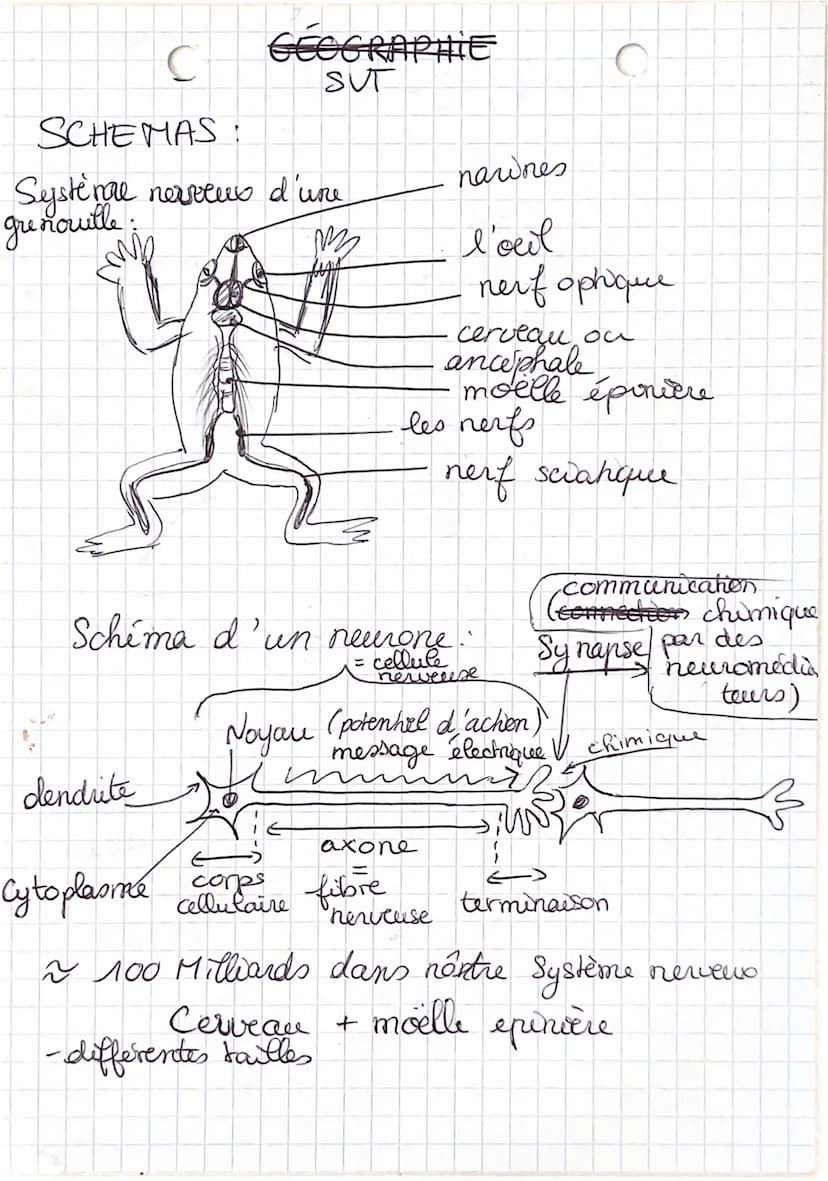 GÉOGRAPHIE
SVT
SCHEMAS :
Système nerveux d'une
grenouille :
narines
l'oeil
nerf optique
cerveau ou
ancéphale
moëlle épinière
les nerfs
nerf sciatique
communication
(connection chimique
Synapse par des
neuromédia
teurs)
Schéma d'un neurone :
= cellule
nerveuse
Noyau (potentiel d'action)
message électrique
chimique
dendrite
axone
=
fibre
nerveuse
Cytoplasme
corps
cellulaire
terminaison
≈ 100 Milliards dans nôntre Système nerveux
Cerveau + moëlle epinière
- différentes tailles